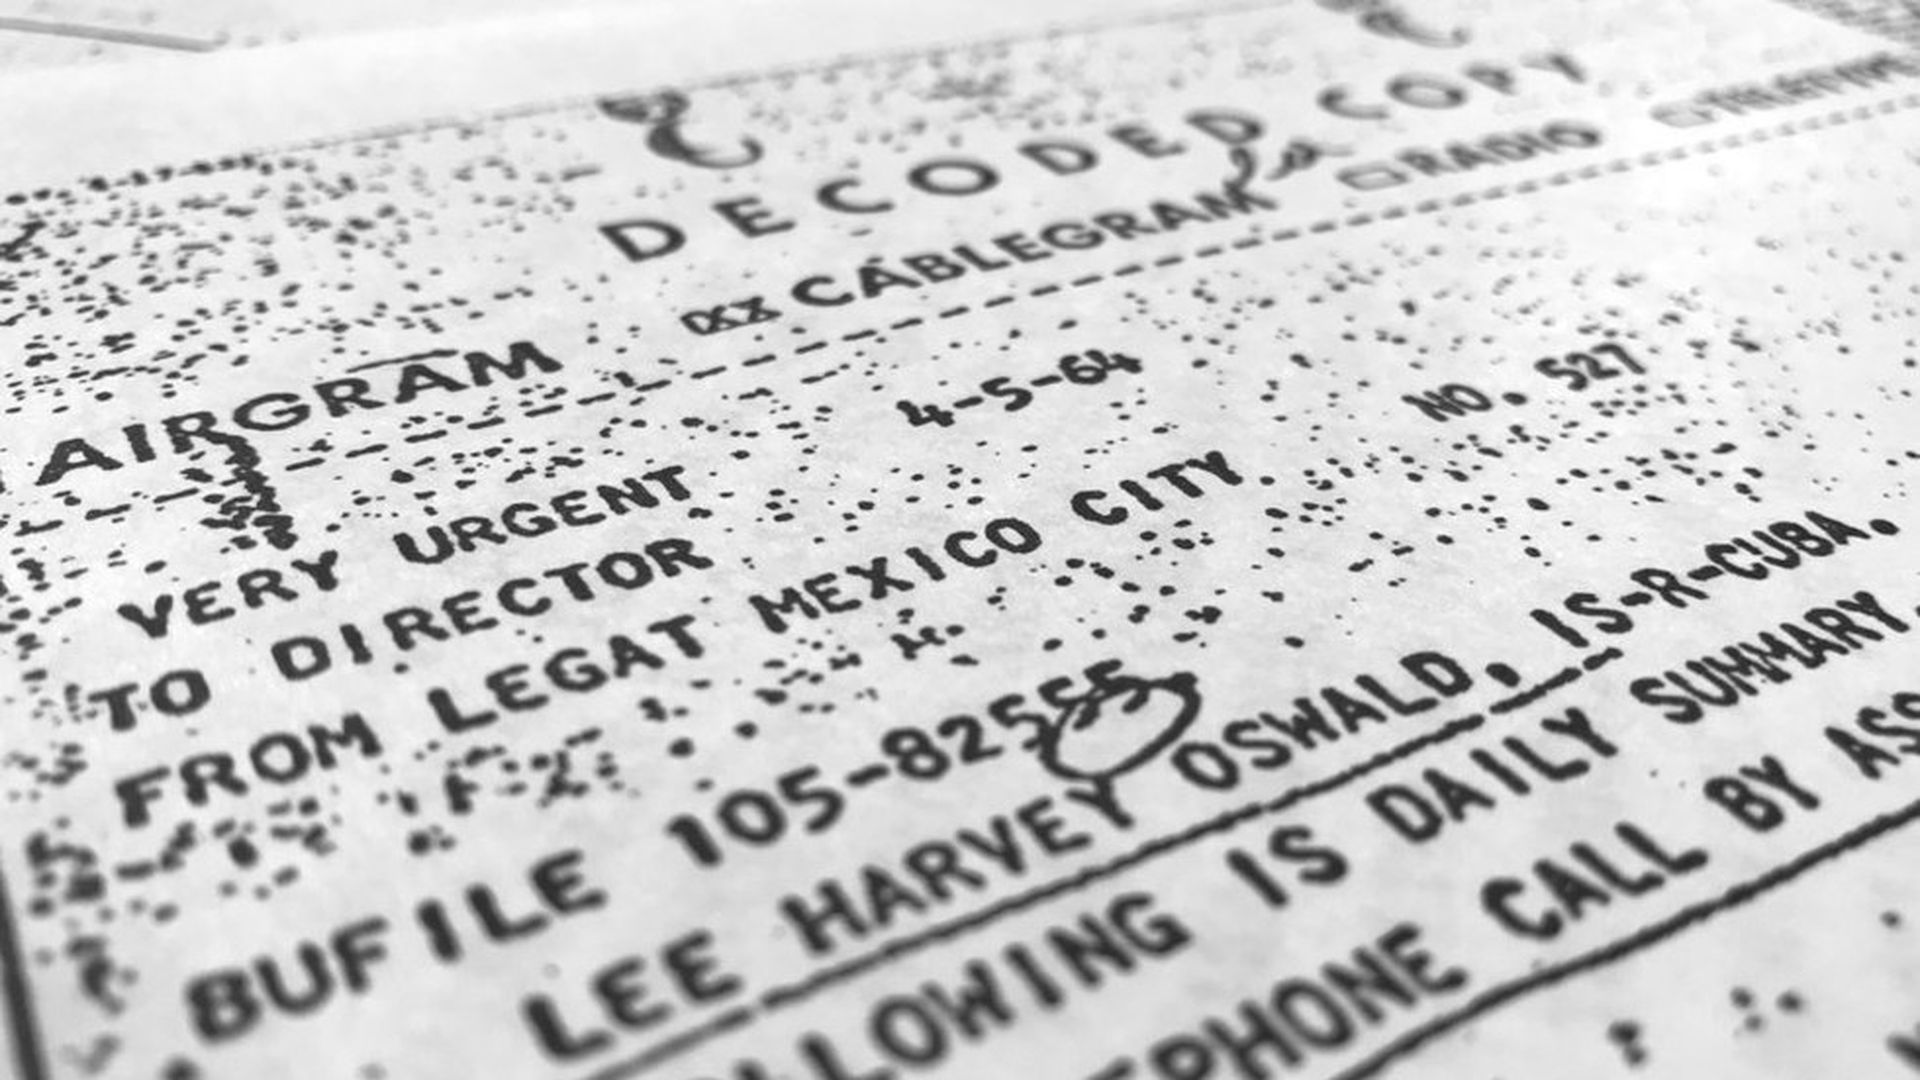 DECODED COPY
AIRGRAM CABLEGRAM RADIO TELETYPE
VERY URGENT 4-5-64 NO. 527
TO DIRECTOR
FROM LEGAT MEXICO CITY
BUFILE 105-82555
LEE HARVEY OSWALD, IS-R-CUBA.
LLOWING IS DAILY SUMMARY.
EPHONE CALL BY ASS